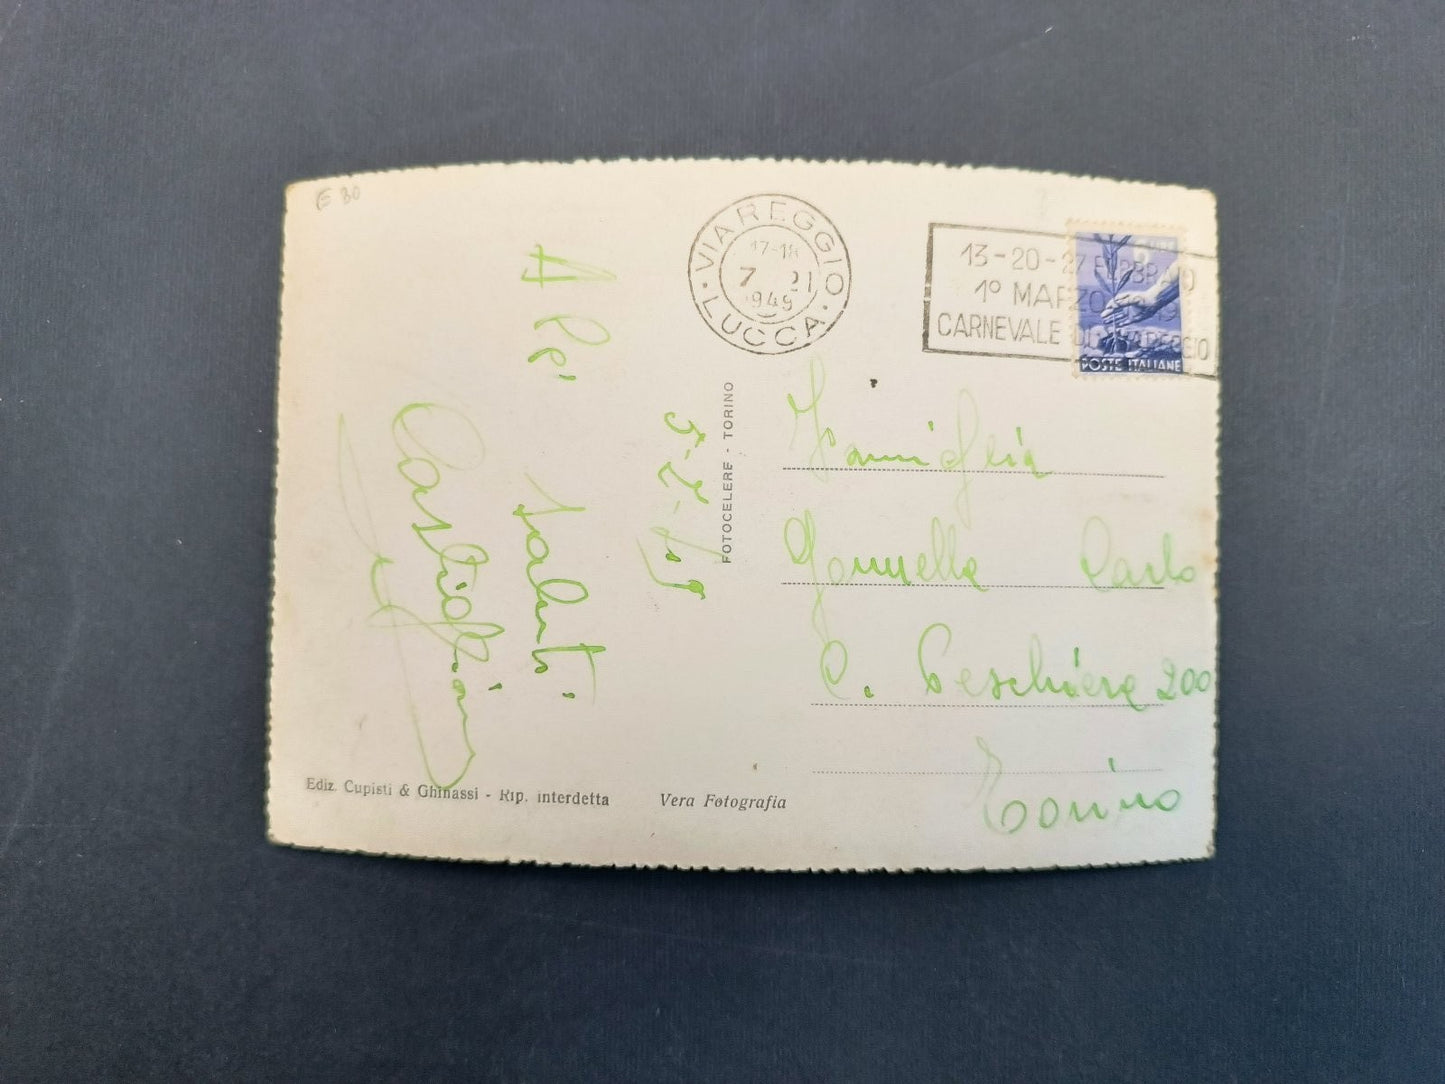 € 80
VIAREGGIO
17-18
7 21
1949
·LUCCA·
13-20-27 FEBBRAIO
1º MARZO 1949
CARNEVALE DI VIAREGGIO
LIRE
POSTE ITALIANE
5-2-49
saluti
Castiglioni
FOTOCELERE - TORINO
Famiglia
Carlo
C. Peschiera 200
Torino
Ediz. Cupisti & Ghinassi - Rip. interdetta
Vera Fotografia